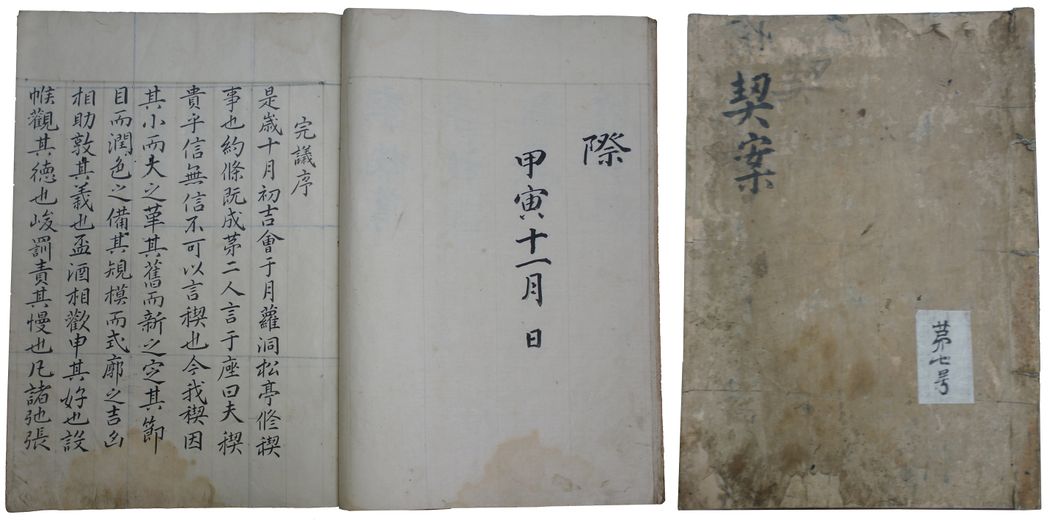 契案
苐七号
際
甲寅十一月 日
完議序
是歲十月初吉會于月蘿洞松亭修稧
事也約條既成苐二人言于座曰夫稧
貴乎信無信不可以言稧也今我稧因
其小而大之革其舊而新之定其節
目而潤色之備其䂓模而式廓之吉凶
相助敦其義也盃酒相歡申其好也設
帿觀其德也峻罰責其慢也凡諸弛張